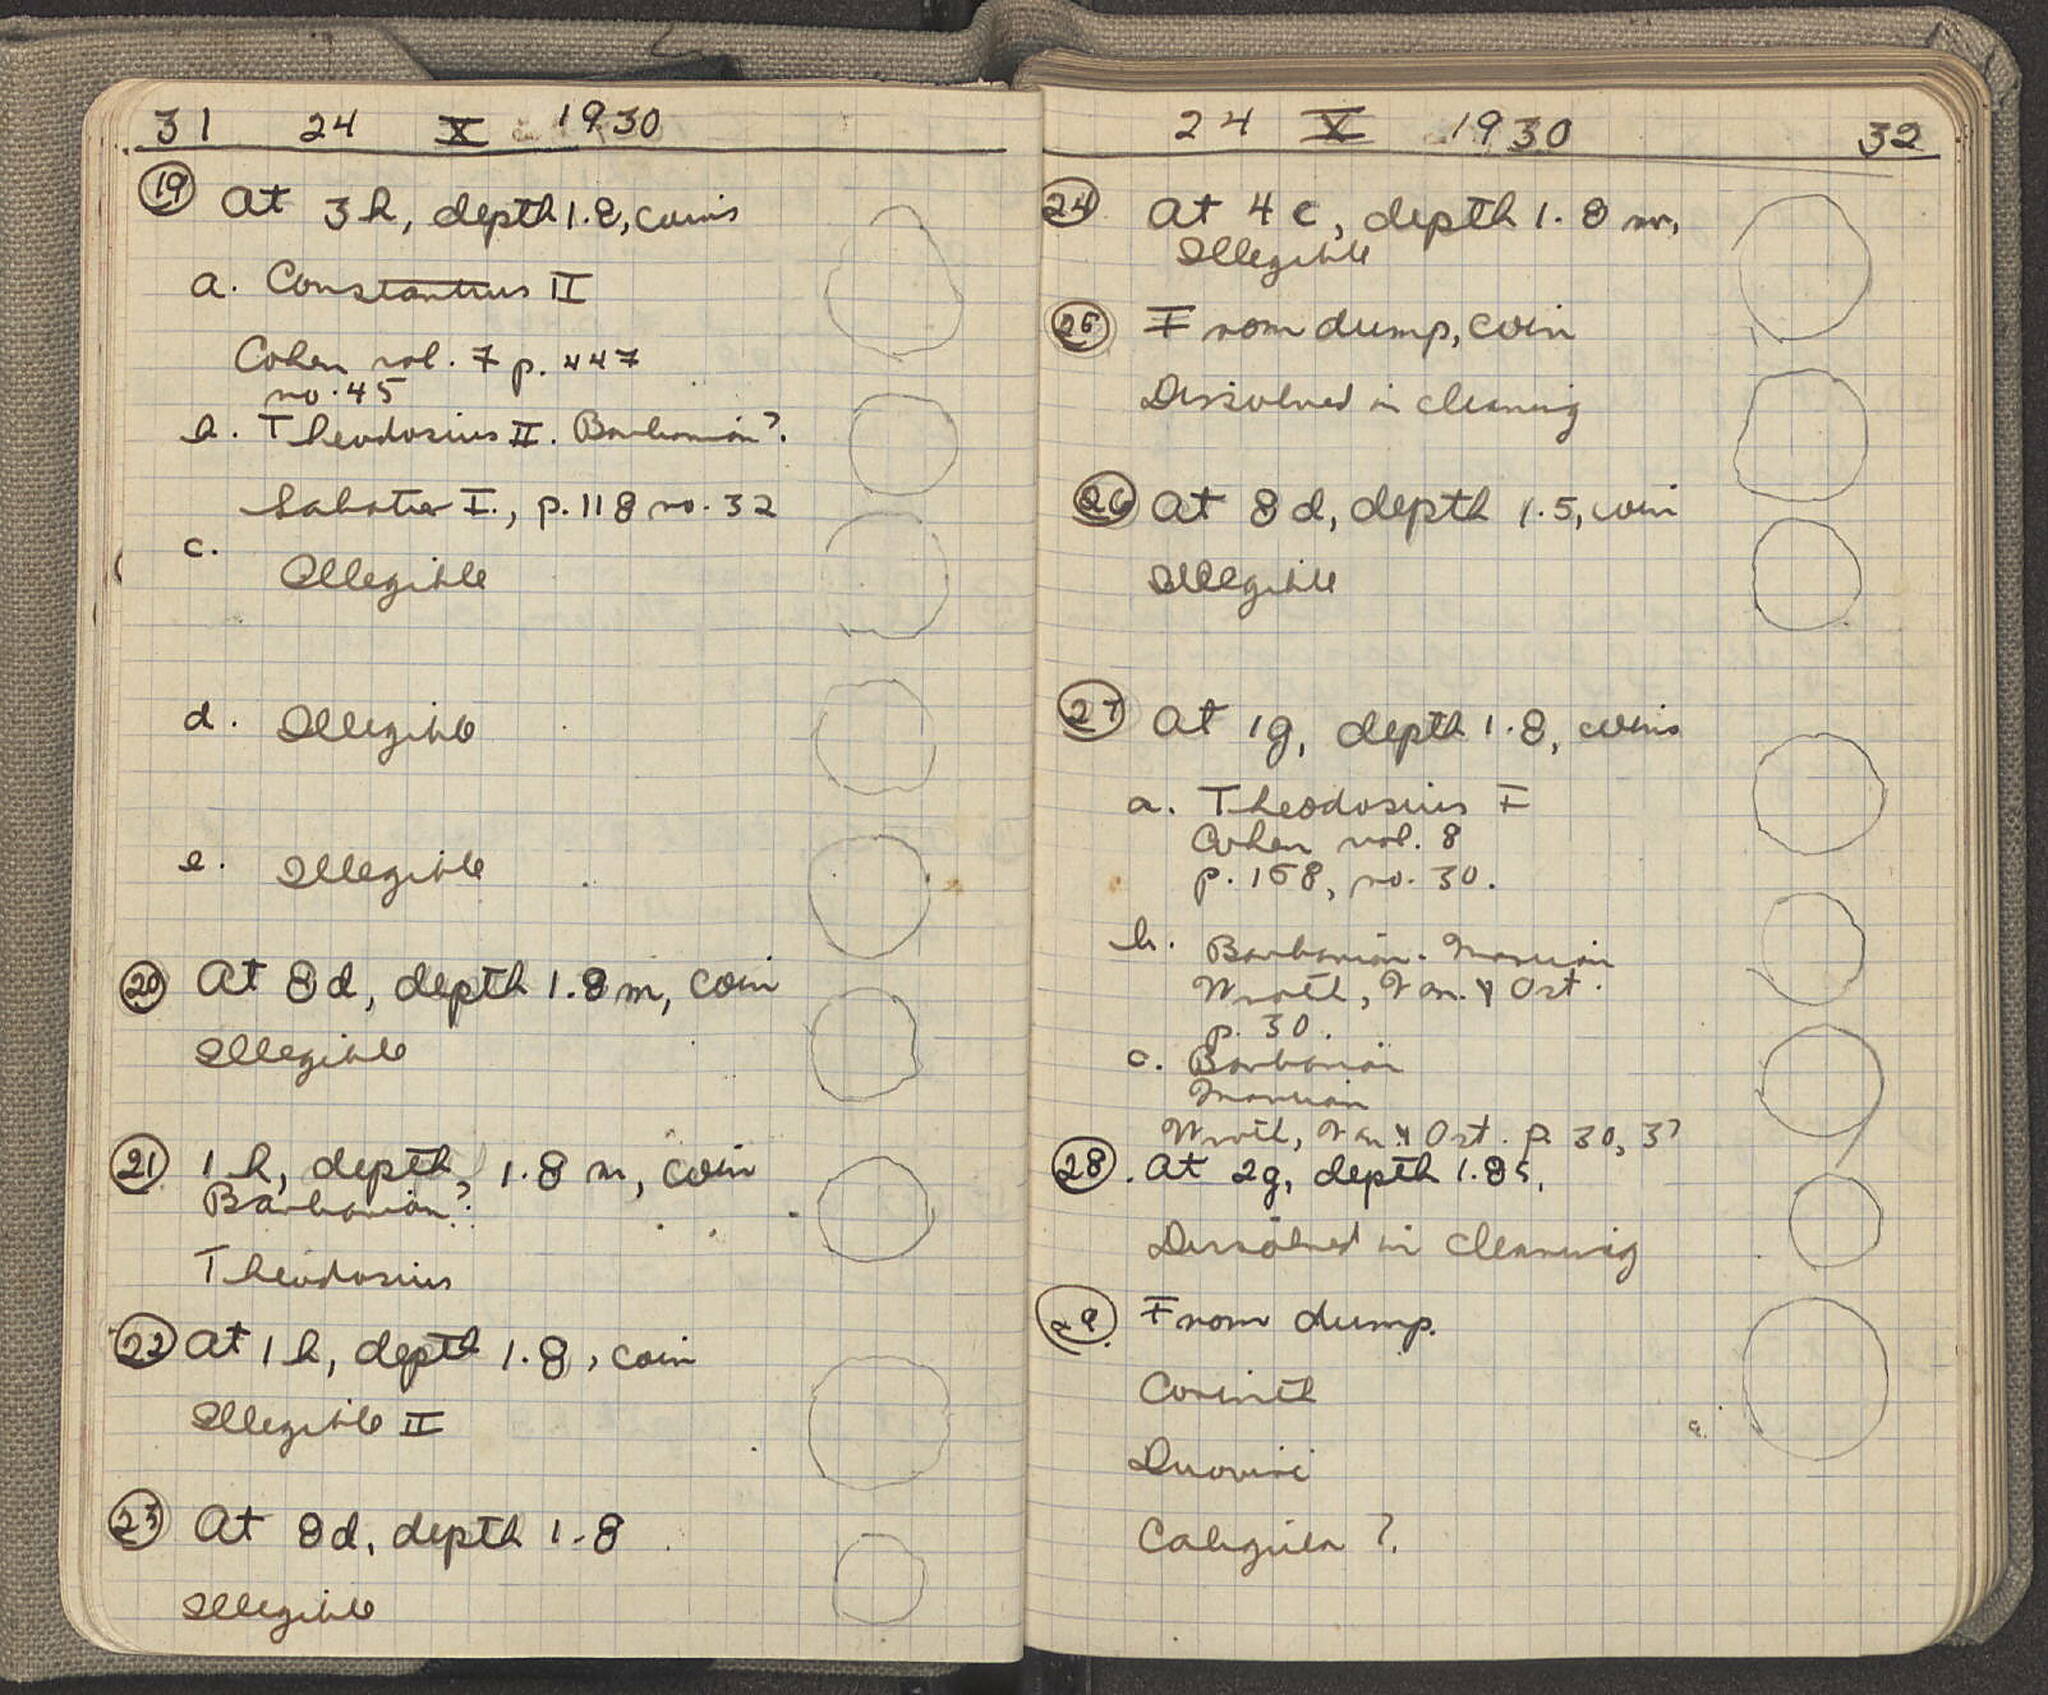 31 24 X 1930
19 At 3h, depth 1.8, coins
a. Constantius II
Cohen vol. 7 p. 447
no. 45
b. Theodosius II. Barbarian?.
Sabatier I., p. 118 no. 32
c.
Illegible
d. Illegible
e. Illegible
20 At 8d, depth 1.8 m, coin
Illegible
21 1h, depth, 1.8 m, coin
Barbarian?:
Theodosius
22 At 1h, depth 1.8, coin
Illegible II
23 At 8d, depth 1.8
Illegible
24 X 1930 32
24 At 4c, depth 1.8 m,
Illegible
25 From dump, coin
Dissolved in cleaning
26 At 8d, depth 1.5, coin
Illegible
27 At 1g, depth 1.8, coins
a. Theodosius I
Cohen vol. 8
p. 158, no. 30.
b. Barbarian. Marcian
Wroth, Van. & Ost.
p. 30.
c. Barbarian
Marcian
Wroth, Van. & Ost. p. 30, 3?
28. At 2g, depth 1.85,
Dissolved in cleaning
29. From dump.
Corinth
Duoviri
Caligula ?.